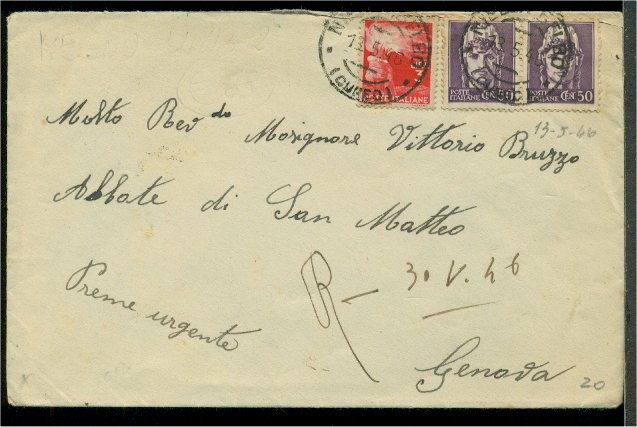 13.5.46
(CUNEO)
POSTE ITALIANE CENT. 50
POSTE ITALIANE CENT. 50
13-5-46
Molto Rev do Monsignore Vittorio Bruzzo
Abbate di San Matteo
Preme urgente
R - 30 V. 46
Genova
20